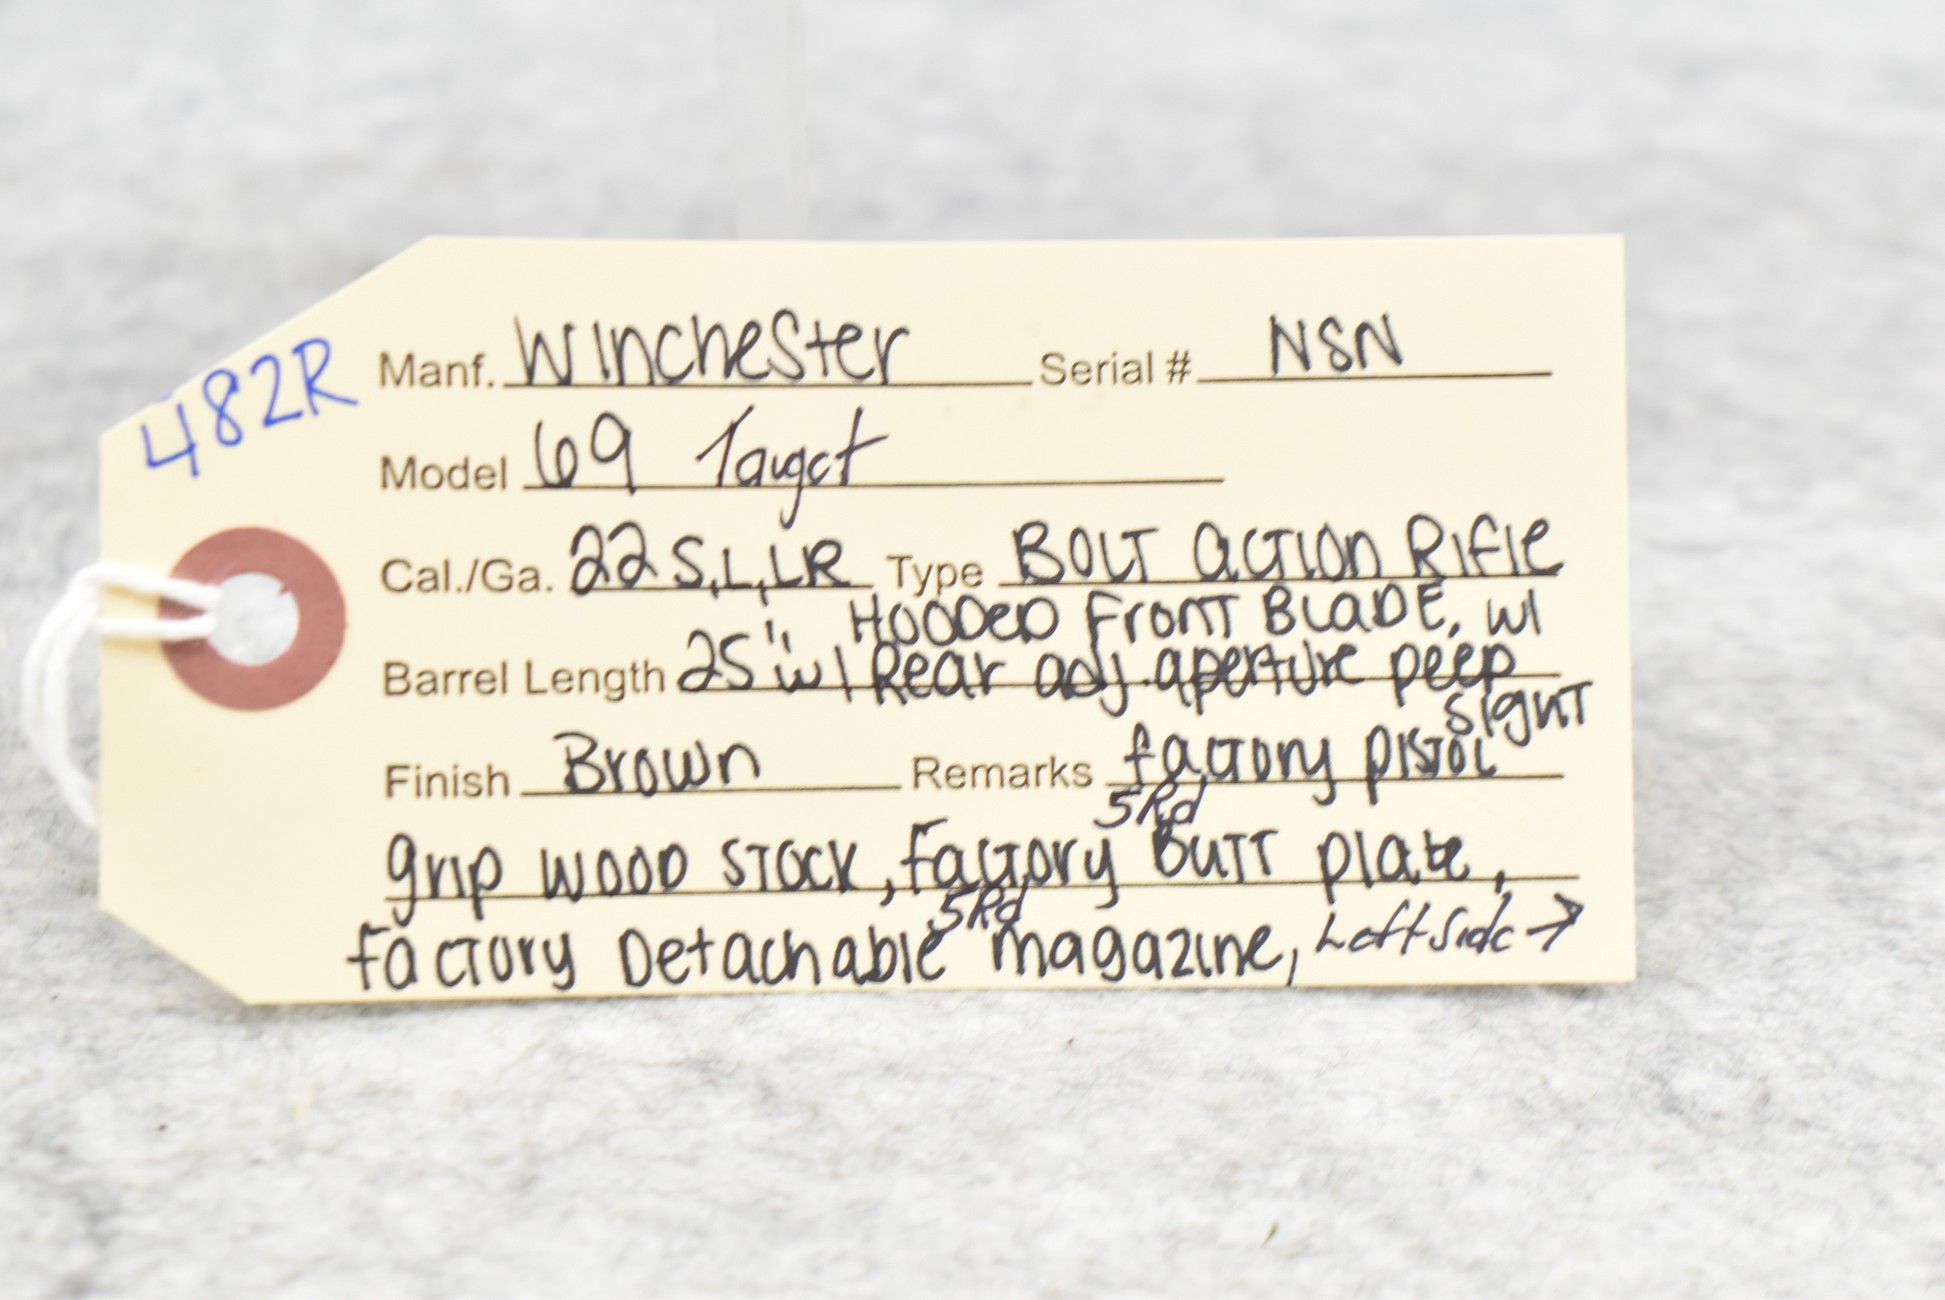 482R
Manf. Winchester Serial # NSN
Model 69 Target
Cal./Ga. 22 S,L,LR Type BOLT ACTION RIFLE
HOODED FRONT BLADE, w/
Barrel Length 25" w/ Rear adj. aperture peep
sight
Finish Brown Remarks factory pistol
5Rd
grip wood stock, factory butt plate,
5Rd
factory Detachable magazine, Left Side →